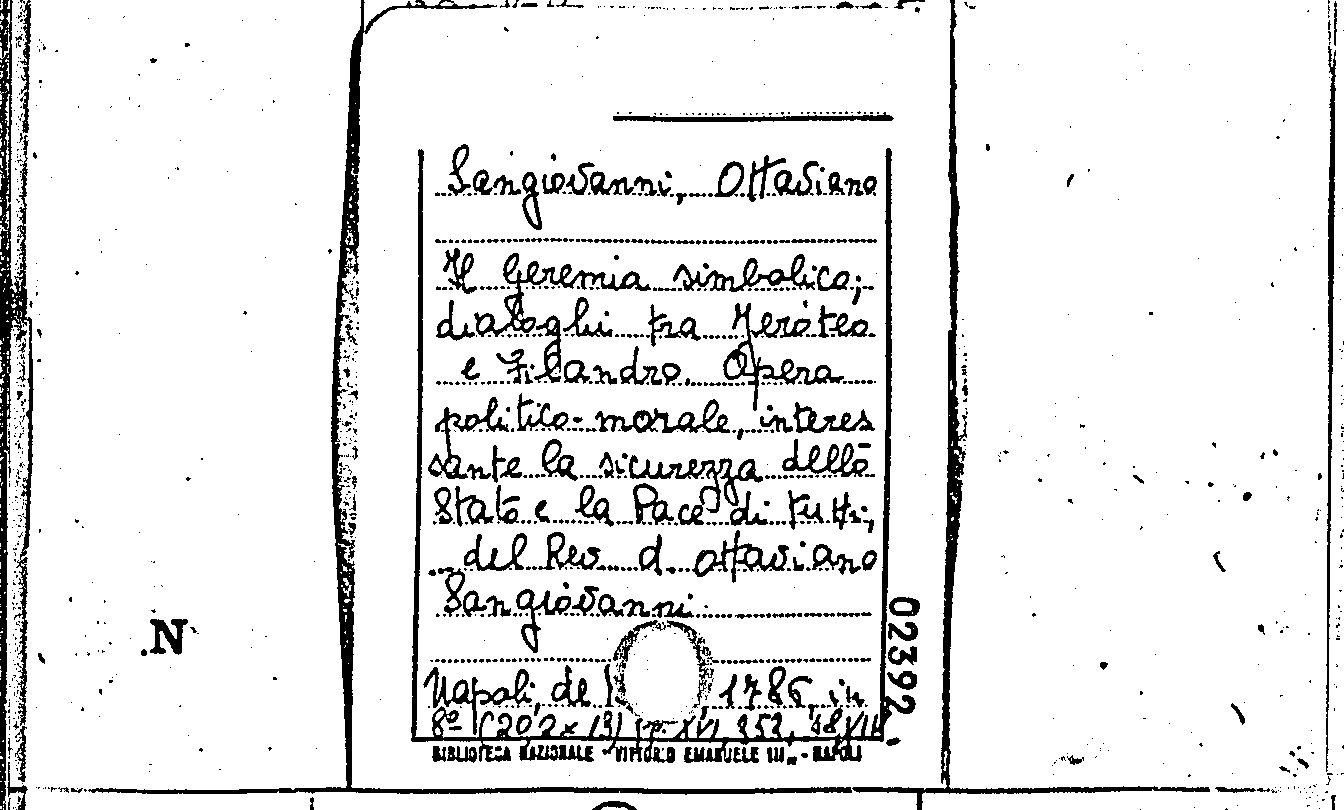 Sangiovanni, Ottaviano
Il Geremia simbolico;
dialoghi tra Jeróteo
e Filandro. Opera
politico-morale, interes
sante la sicurezza dello
Stato e la Pace di tutti,
del Rev d. Ottaviano
Sangiovanni.
Napoli, de 1786, in
8º (20,2 x 13) pp. XVI, 352,
BIBLIOTECA NAZIONALE - VITTORIO EMANUELE III„ - NAPOLI
02392
.N